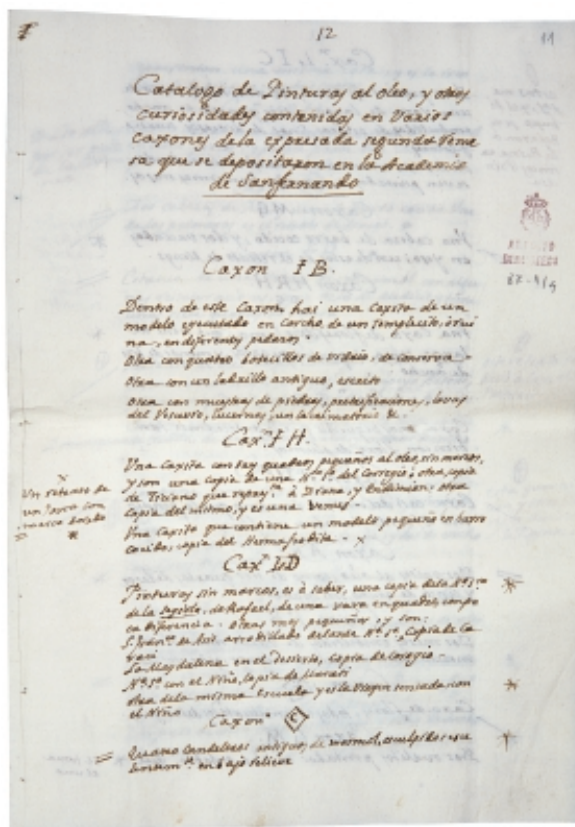 12
11
Catalogo de Pinturas al oleo, y otras
curiosidades contenidas en varios
caxones de la expresada segunda
que se depositaron en la Academia
de Sanfernando
Caxon I B.
Dentro de este Caxon, hai una caxita de un
modelo executado en corcho, de un templecito, ó rui
na, en diferentes pedazos.
Otra con quatro botecillos de vidrio, de conserva
Otra con un ladrillo antiguo, escrito
Otra con muestras de piedras, petrificaciones, lavas
del Vesuvio, lucernas, un &.
Caxn. I H.
Una Caxita con seis quadros pequeños al oleo, sin marcos,
y son una copia de una Na. Sa. del Coregio; otra, copia
de Ticiano que à Diana, y Endimion. otra
copia del mismo, y es una Venus
Una Caxita que contiene un modelo pequeño en barro
cocido, copia del Hermafrodita. x
x
Un retrato de
un con
marco
Caxn. L D
Pinturas sin marcos, es à saber, una copia de la Na. Sra.
de la, de Rafael, de una vara en quadro con po
ca diferencia. Otras mas pequeñas, y son:
S. Franco. de Asis arrodillado delante Na. Sa., Copia de Ca
raci
La Magdalena en el Desierto, copia de Coregio.
Na. Sa. con el Niño, copia de Marati
otra de la misma escuela y es la Virgen sentada con
el Niño
Caxon C
Quatro Candeleros antiguos de marmol, esculpidos
en bajo relieve